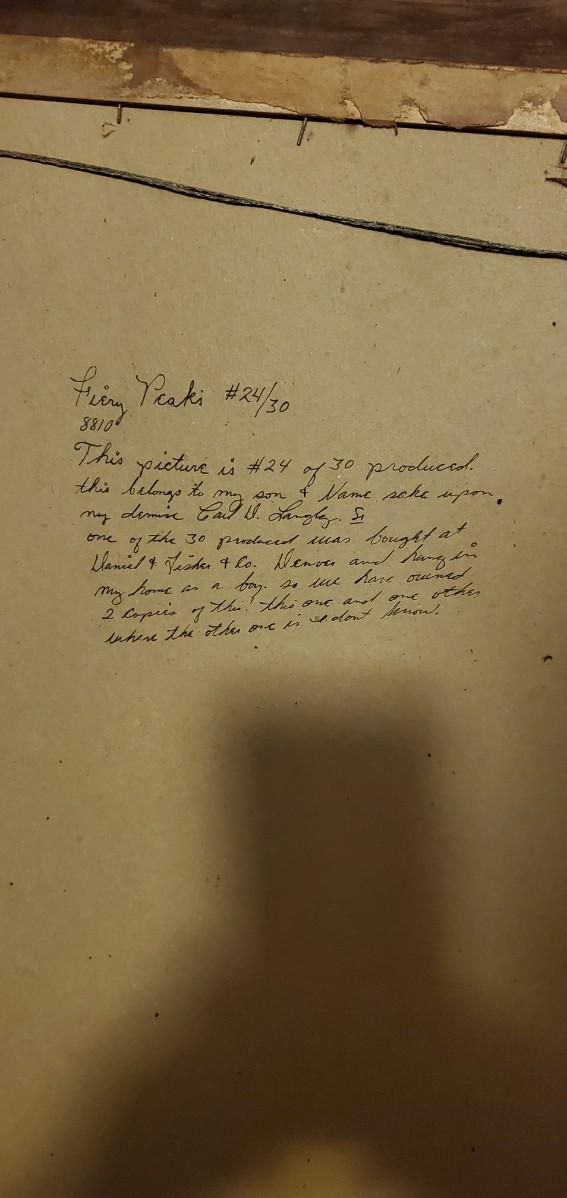 Fiery Peaks #24/30
8810
This picture is #24 of 30 produced.
this belongs to my son & Name sake upon
my demise Carl D. Langley. Sr
one of the 30 produced was bought at
Daniel & Fisher & Co. Denver and hung in
my home as a boy. so we have owned
2 copies of this! this one and one other
where the other one is I dont know.